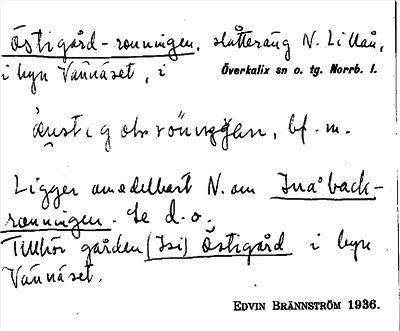 Östigård-ronningen, slåtteräng N. Lillån,
i byn Vännäset, i Överkalix sn o. tg. Norrb. l.
bf. m.
Ligger omedelbart N. om Inåback-
ronningen. Se d. o.
Tillhör gården (Isi) Östigård i byn
Vännäset.
EDVIN BRÄNNSTRÖM 1936.